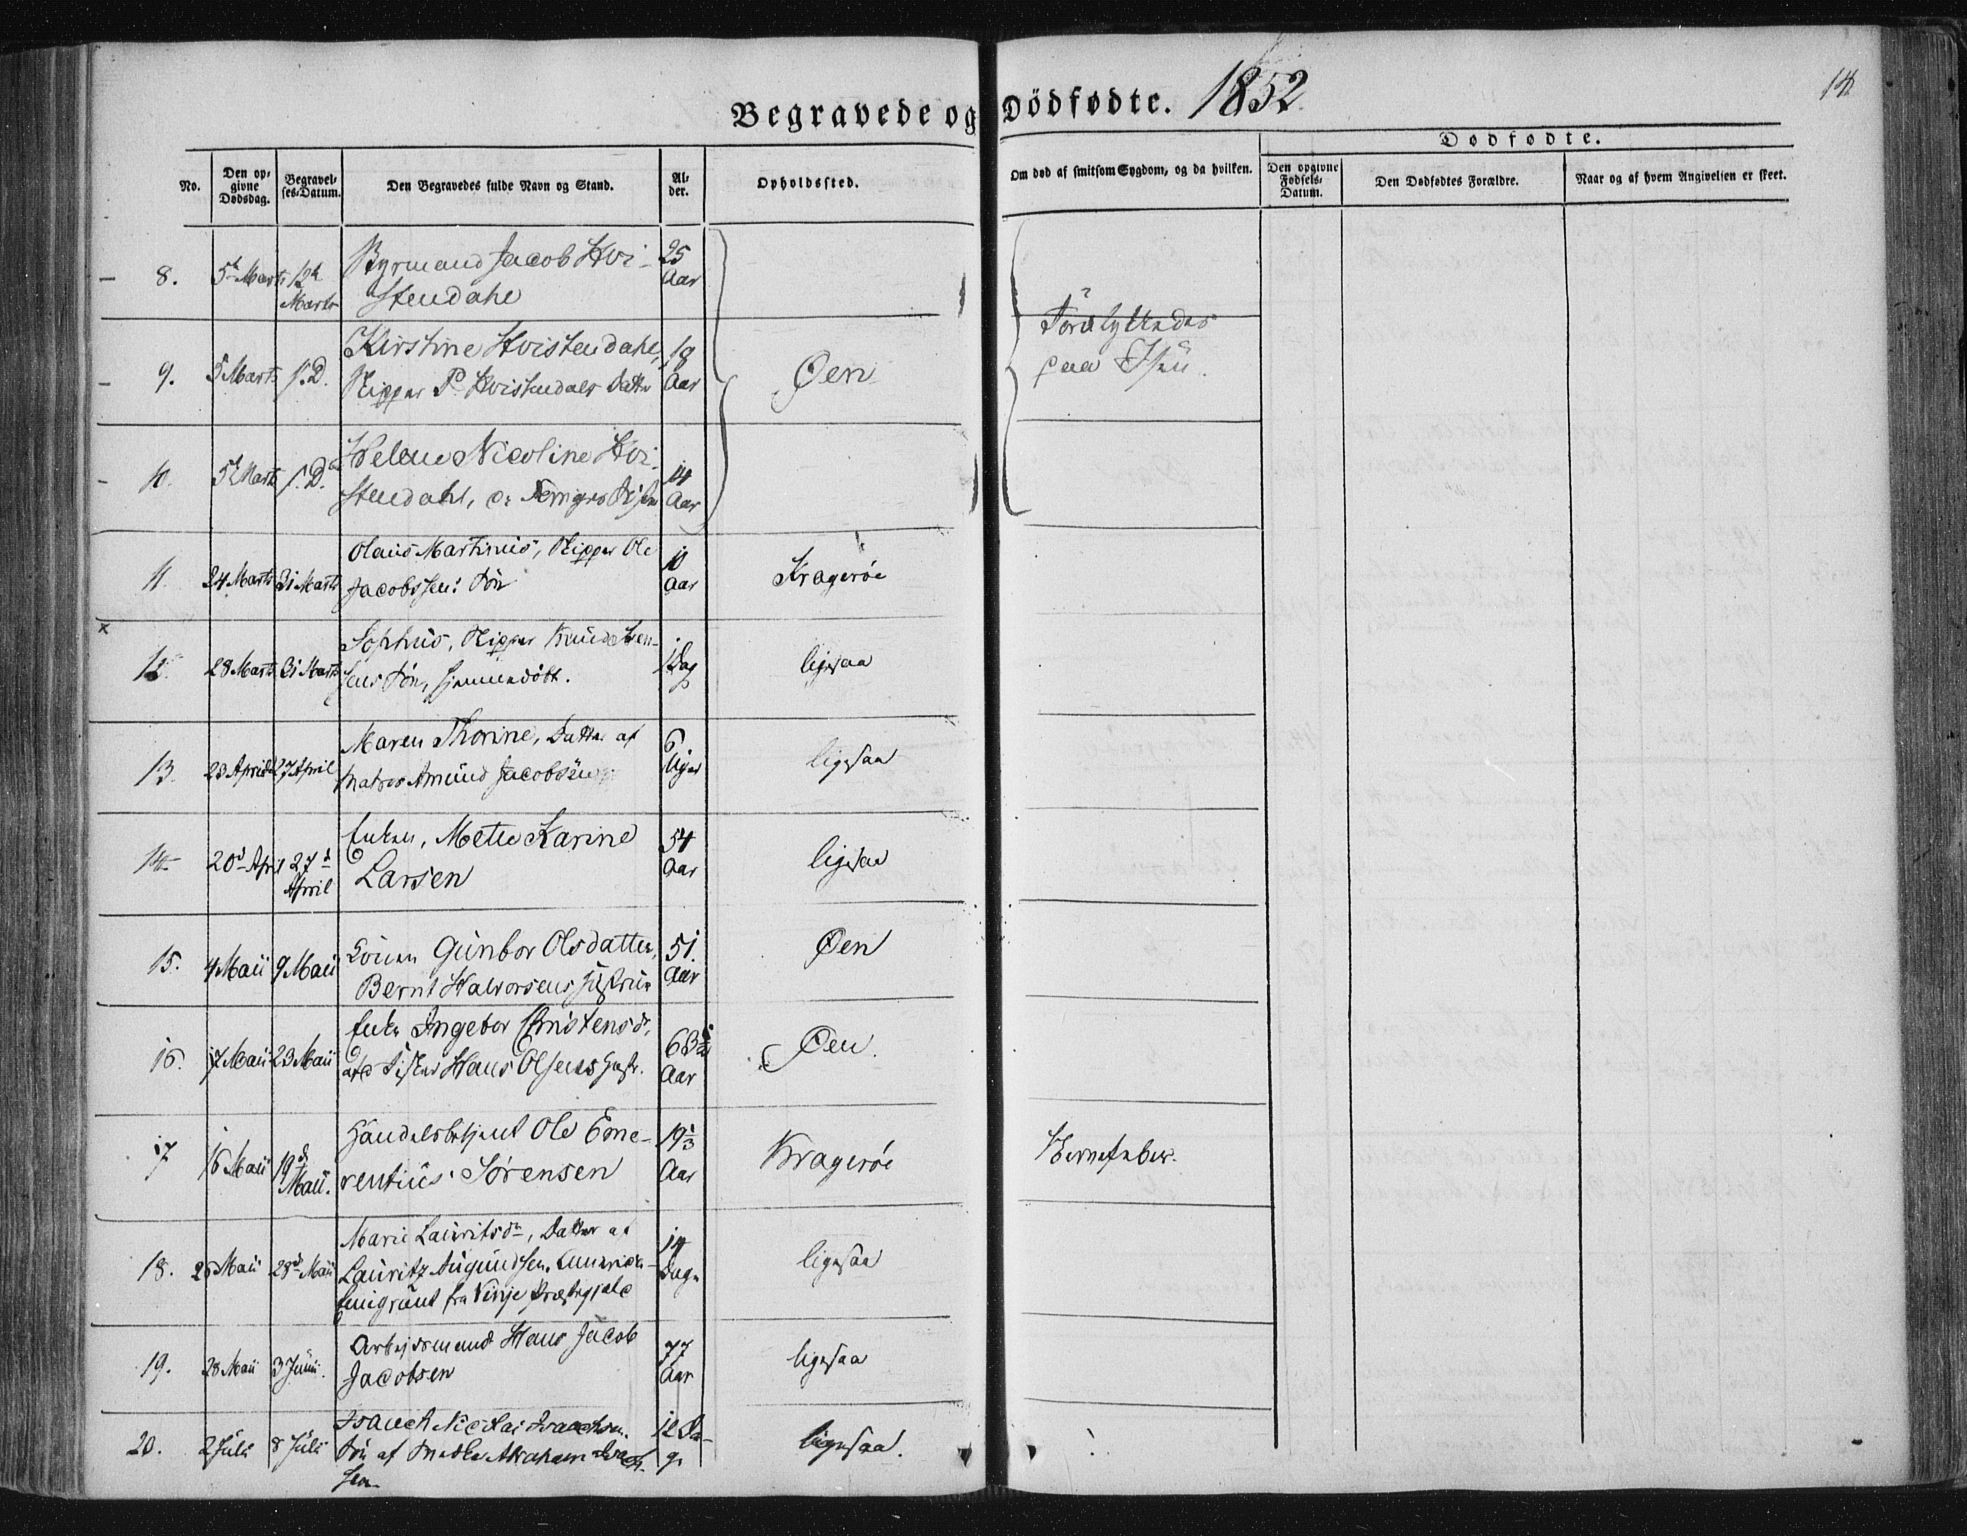 Begravede og Dödfødte. 1852
14
No.
Den op-
givne
Dødsdag.
Begravel-
ses-Datum.
Den Begravedes fulde Navn og Stand.
Al-
der.
Opholdssted.
Om død af smitsom Sygdom, og da hvilken.
Dødfødte.
Den opgivne
Fødsels-
Datum.
Den Dødfødtes Forældre.
Naar og af hvem Angivelsen er skeet.
8. 5te Marts 12te Marts Jacob Hvi-
stendahl
25 Aar
Forulykkedes
paa
9. 5 Marts s.D. Kirstine Hvistendahl,
Skipper P. Hvistendals Datter
18 Aar
Øen
10. 5te Marts s.D. Helene Nicoline Hvi-
stendahl,
14 Aar
11. 24 Marts 31 Marts Olaus Martinus, Skipper Ole
Jacobssens Sön
10 Aar
Kragerøe
x
12. 28 Marts 31 Marts Sophus, Skipper Knud
sens Sön, hjemmedöbt.
1 Dag
ligesaa
13. 23 April 27 April Maren Thorine, Datter af
Matros Amund Jacobsen
6 Uger
ligesaa
14 20d April 27d April Enken, Mette Karine
Larsen
54 Aar
ligesaa
15. 4 Maii 9 Maii Konen Gunbor Olsdatter,
Bernt Halvorsens Hustrue
51. Aar
Øen
16. 17 Maii 23 Maii Enke Ingebor Christensdr,
Fisker Hans Olsens
68 Aar
Øen.
17 16 Maii 19d Maii. Handelsbetjent Ole Eme-
rentius Sørensen
19 1/3 Aar
Kragerøe
Nervefeber.
18. 26 Maii 28d Maii Marie Lauritsdr, Datter af
Lauritz Augundsen,
Emigrant fra Vinje Præstegjeld
14 Dage
ligesaa
19. 28 Maii 3 Junii. Arbeidsmand Hans Jacob
Jacobsen
77 Aar
ligesaa
20. 2 Juli 8 Juli Isaach Nicolai Isaachsen.
Sön af Abraham Isach-
sen
12 Da-
ge
ligesaa.